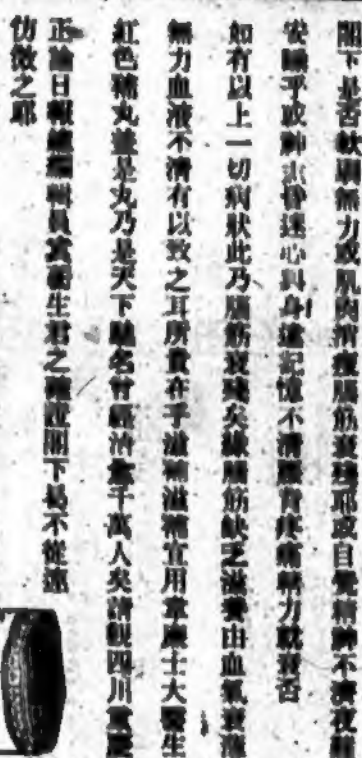 閣下是否缺乏無力或肌肉消瘦腦筋衰殘耶或自覺精神不濟夜難
安睡乎或神志昏迷心與身違記憶不清腰背疼痛精力衰否
如有以上一切病狀此乃腦筋衰殘矣緣腦筋缺乏滋養由血氣衰薄
無力血液不清有以致之耳所貴在乎滋補滋補宜用韋廉士大醫生
紅色補丸蓋是丸乃是天下馳名曾經治愈千萬人矣請觀四川重慶
正論日報總編輯員 衛生君之 閣下曷不從速
仿傚之耶